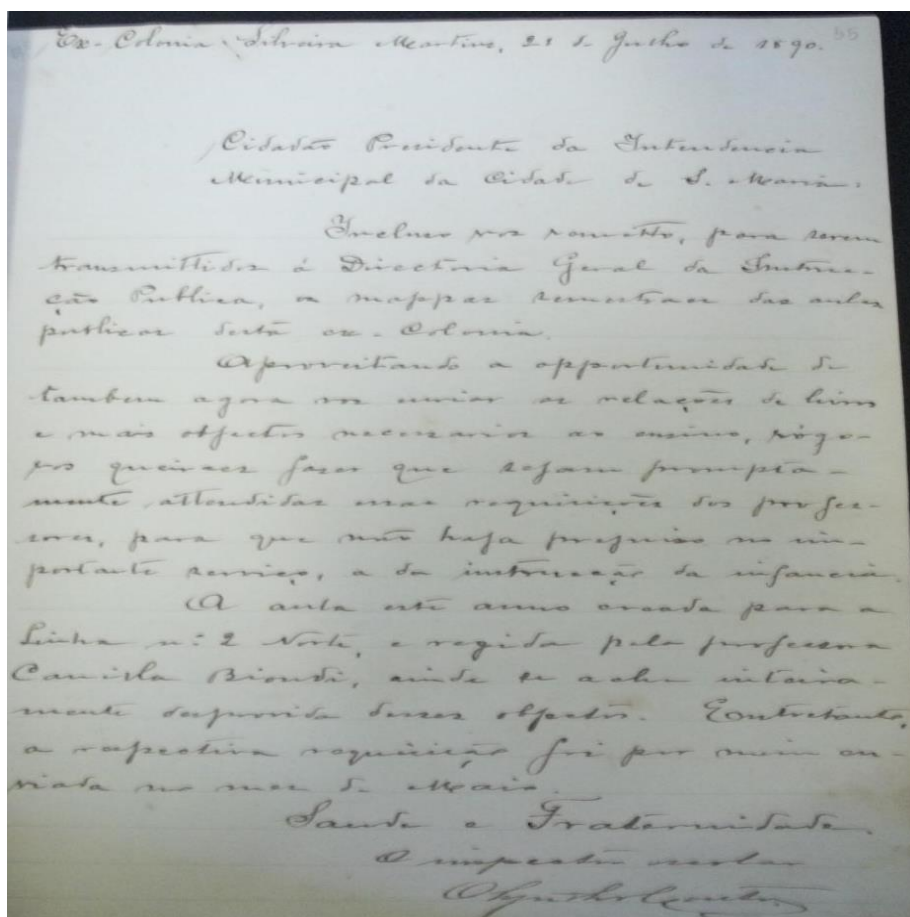 Ex-Colonia Silveira Martins, 21 de Julho de 1890.
55
Cidadão Presidente da Intendencia
Municipal da Cidade de S. Maria.
Incluso vos remetto, para serem
transmittidos á Directoria Geral da Instruc-
ção Publica, os mappas semestraes das aulas
publicas desta ex-Colonia.
Aproveitando a opportunidade de
tambem agora vos enviar as relações de livros
e mais objectos necessarios ao ensino, rógo-
vos queiraes fazer que sejam prompta-
mente attendidas essas requisições dos profes-
sores, para que não haja prejuiso no im-
portante serviço, a da instrucção da infancia.
A aula este anno creada para a
Linha n.º 2 Norte, e regida pela professora
Camilla Biondi, ainda se acha inteira-
mente desprovida desses objectos. Entretanto,
a respectiva requisição foi por mim en-
viada no mez de Maio.
Saude e Fraternidade.
O inspector escolar